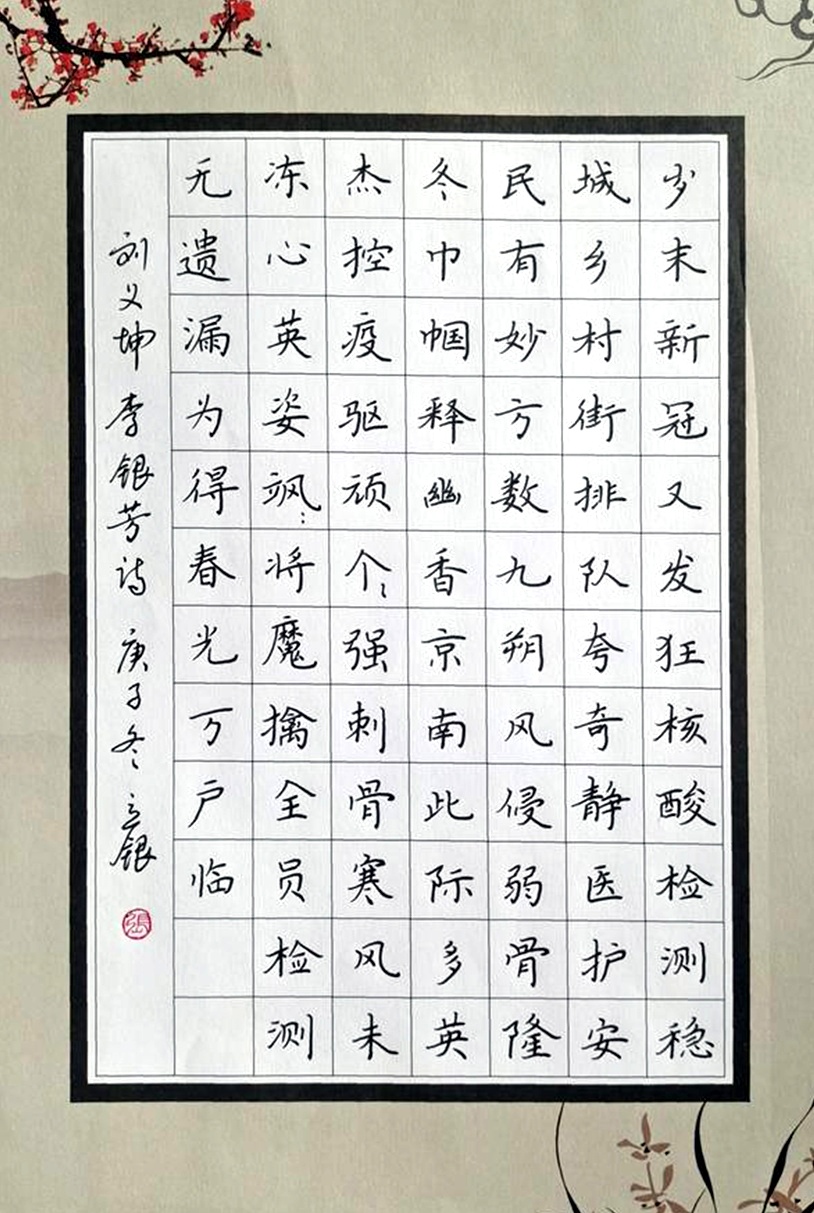 岁末新冠又发狂核酸检测稳
城乡村街排队夸奇静医护安
民有妙方数九朔风侵弱骨隆
冬巾帼释幽香京南此际多英
杰控疫驱顽个〻强刺骨寒风未
冻心英姿飒〻将魔擒全员检测
无遗漏为得春光万户临
刘义坤 李银芳诗 庚子冬 立银
張